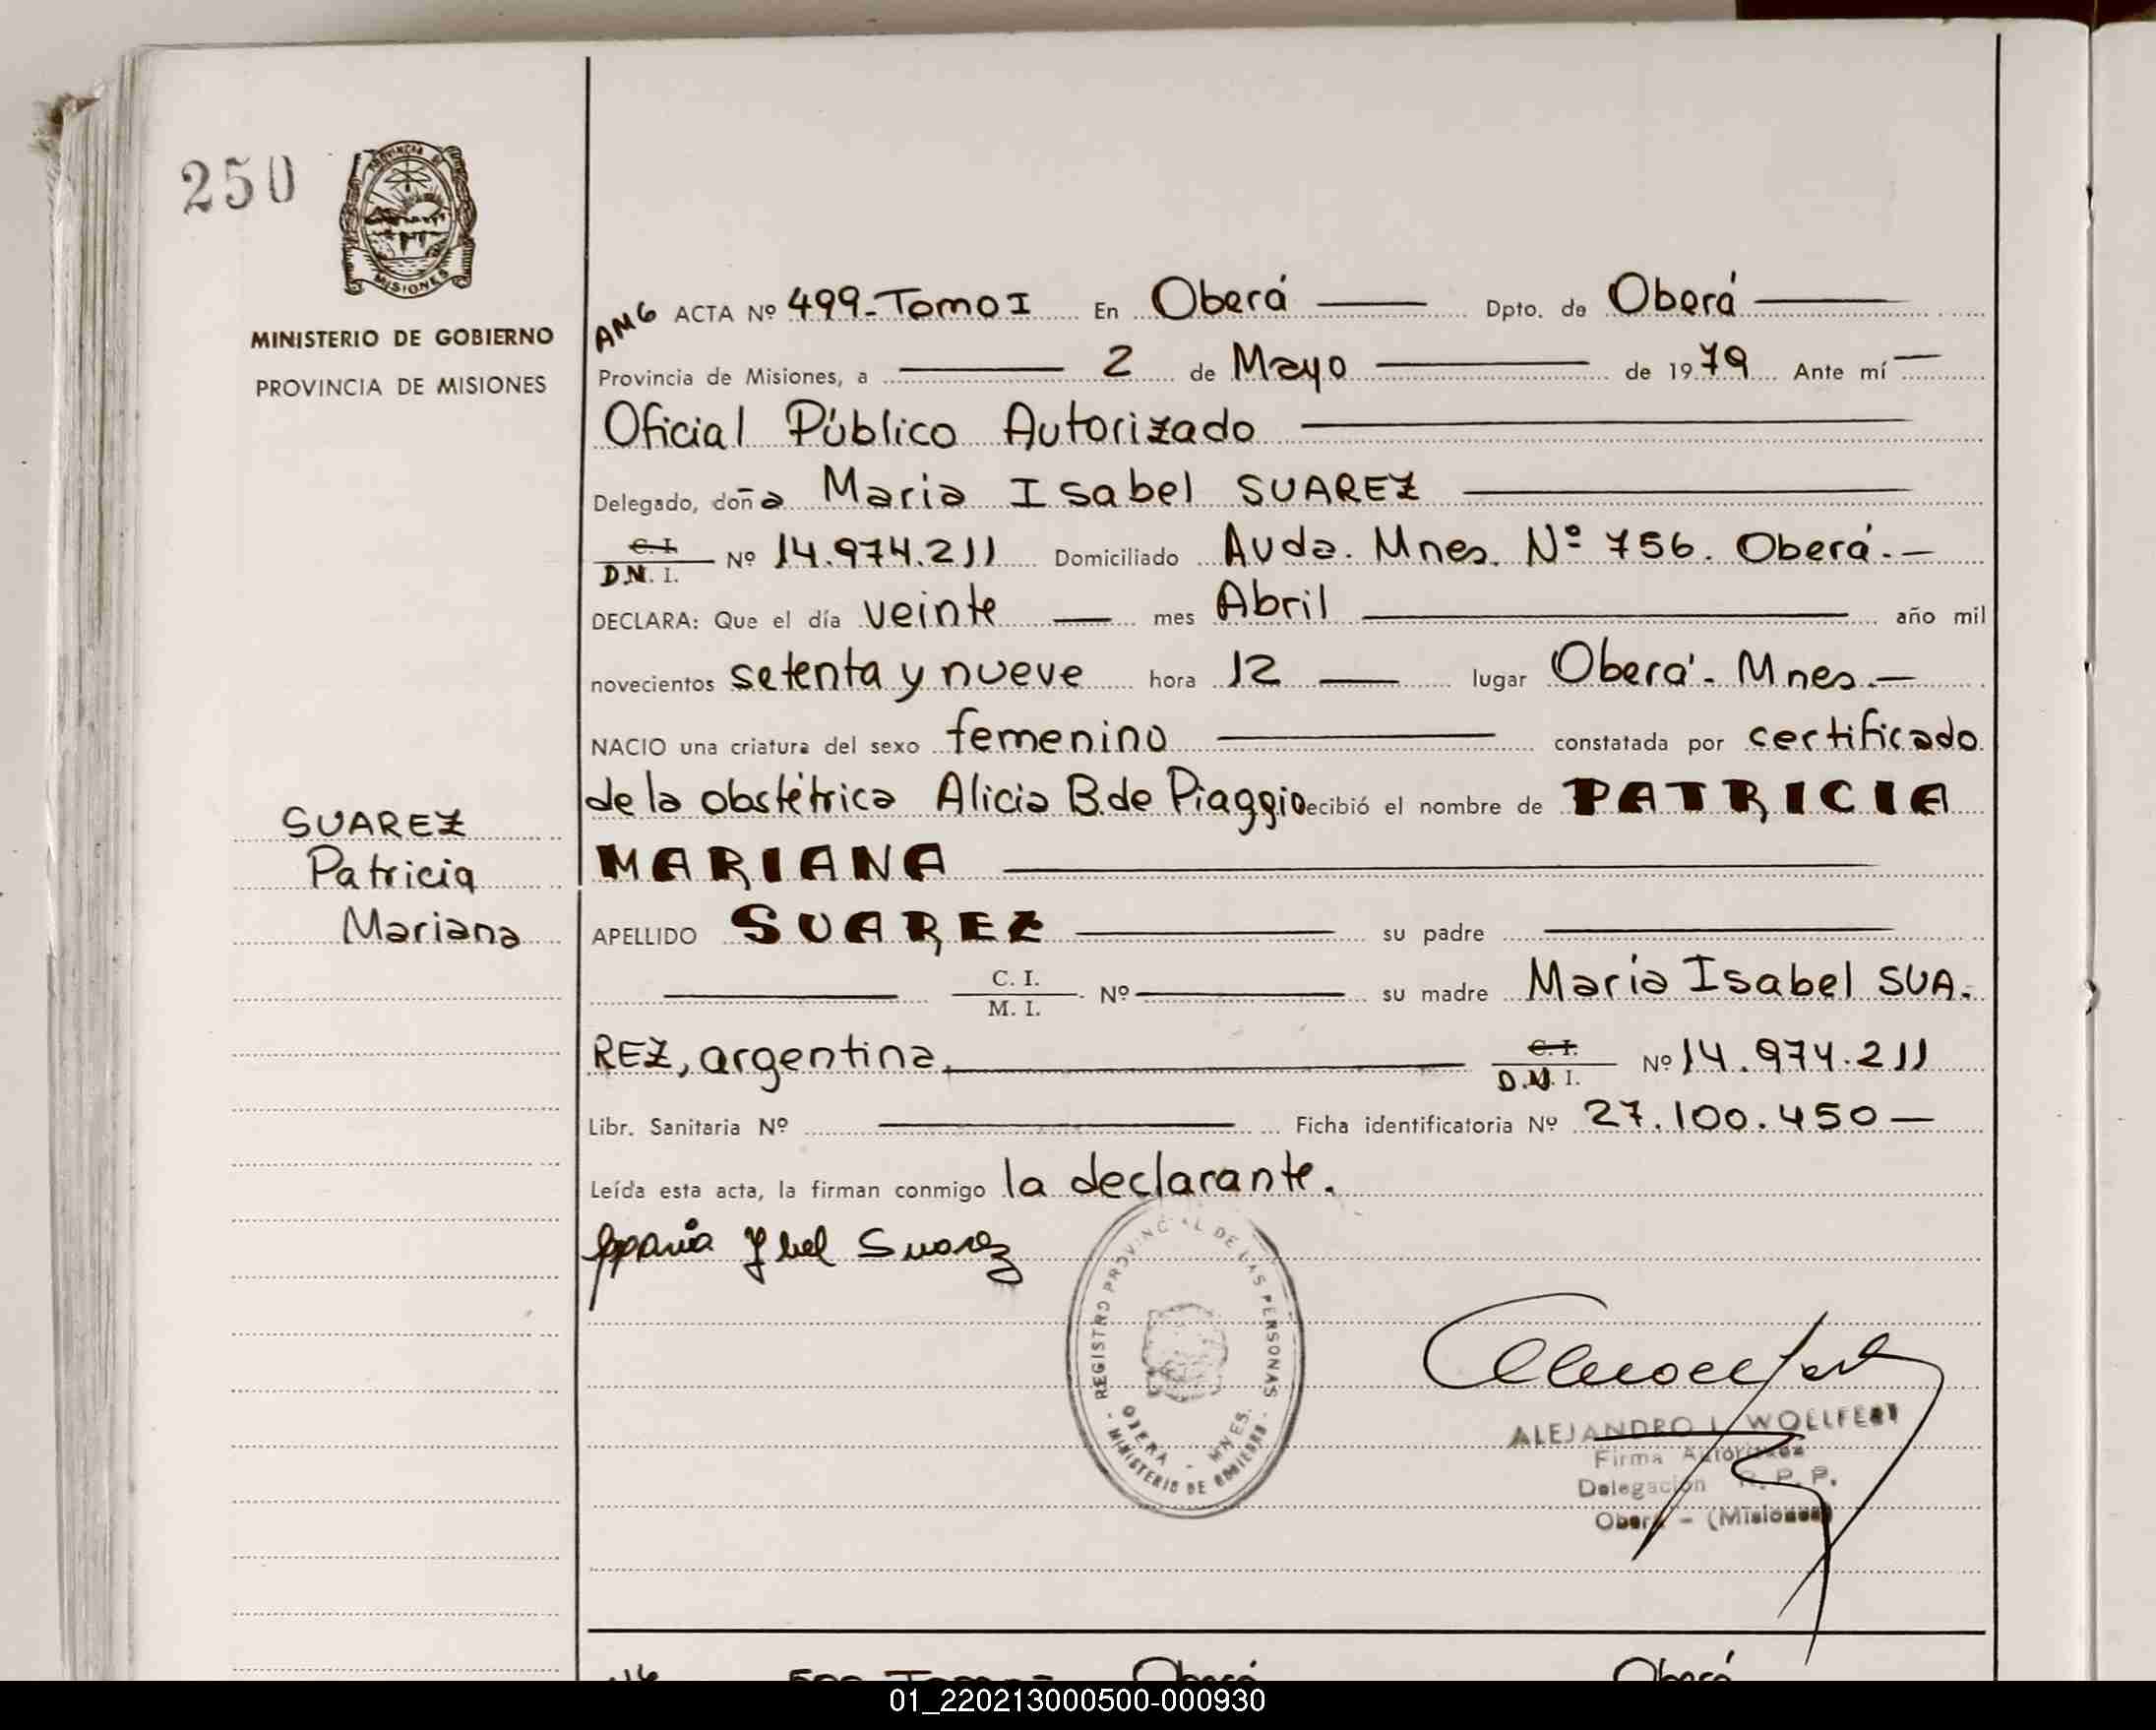 250
PROVINCIA DE
MISIONES
MINISTERIO DE GOBIERNO
PROVINCIA DE MISIONES
SUAREZ
Patricia
Mariana
AMG ACTA Nº 499-Tomo I En Oberá Dpto. de Oberá
Provincia de Misiones, a 2 de Mayo de 1979 Ante mí
Oficial Público Autorizado
Delegado, doña Maria Isabel SUAREZ
C. I.
D.N. I. Nº 14.974.211 Domiciliado Avda. Mnes. Nº 756. Oberá.-
DECLARA: Que el día veinte mes Abril año mil
novecientos setenta y nueve hora 12 lugar Oberá- Mnes.-
NACIO una criatura del sexo femenino constatada por certificado
de la obstétrica Alicia B. de Piaggio ecibió el nombre de PATRICIA
MARIANA
APELLIDO SUAREZ su padre
C. I.
M. I. Nº su madre María Isabel SUA-
REZ, argentina, C. I.
D.N. I. Nº 14.974.211
Libr. Sanitaria Nº Ficha identificatoria Nº 27.100.450
Leída esta acta, la firman conmigo la declarante.
Suarez
- REGISTRO PROVINCIAL DE LAS PERSONAS -
OBERA - MNES.
MINISTERIO DE GOBIERNO
ALEJANDRO L. WOLLFERT
Firma Autorizada
Delegación R. P. P.
Oberá - (Misiones)
01_220213000500-000930